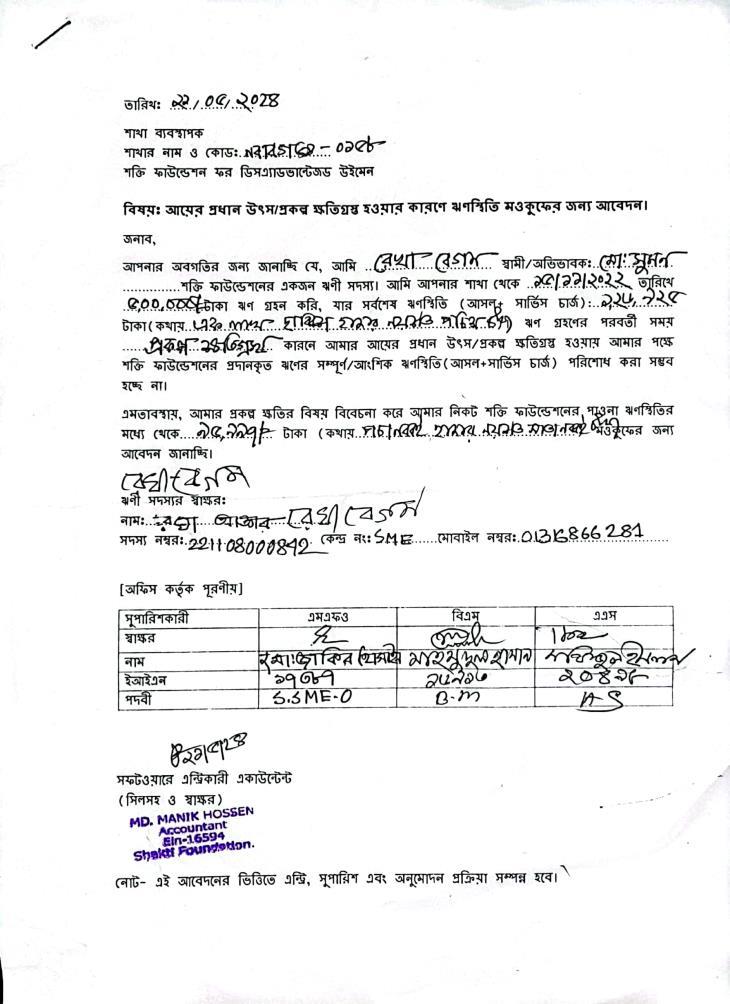 তারিখ: ২২/০৫/২০২৪
শাখা ব্যবস্থাপক
শাখার নাম ও কোড:
শক্তি ফাউন্ডেশন ফর ডিসএ্যাডভান্টেজড উইমেন
বিষয়: আয়ের প্রধান উৎস/প্রকল্প ক্ষতিগ্রস্থ হওয়ার কারণে ঋণস্থিতি মওকুফের জন্য আবেদন।
জনাব,
আপনার অবগতির জন্য জানাচ্ছি যে, আমি রেখা বেগম স্বামী/অভিভাবক: মো: সুমন
শক্তি ফাউন্ডেশনের একজন ঋণী সদস্য। আমি আপনার শাখা থেকে তারিখে
টাকা ঋণ গ্রহন করি, যার সর্বশেষ ঋণস্থিতি (আসল+ সার্ভিস চার্জ):
টাকা (কথায় ঋণ গ্রহণের পরবর্তী সময়
প্রকল্প ক্ষতিগ্রস্থ কারনে আমার আয়ের প্রধান উৎস/প্রকল্প ক্ষতিগ্রস্থ হওয়ায় আমার পক্ষে
শক্তি ফাউন্ডেশনের প্রদানকৃত ঋণের সম্পূর্ণ/আংশিক ঋণস্থিতি(আসল+সার্ভিস চার্জ) পরিশোধ করা সম্ভব
হচ্ছে না।
এমতাবস্থায়, আমার প্রকল্প ক্ষতির বিষয় বিবেচনা করে আমার নিকট শক্তি ফাউন্ডেশনের পাওনা ঋণস্থিতির
মধ্যে থেকে টাকা (কথায় মওকুফের জন্য
আবেদন জানাচ্ছি।
রেখা বেগম
ঋণী সদস্যর স্বাক্ষর:
নাম: রেখা বেগম
সদস্য নম্বর: 221108000842 কেন্দ্র নং: SME মোবাইল নম্বর: 01316866281
[অফিস কর্তৃক পূরণীয়]
সুপারিশকারী এমএফও বিএম এএস
স্বাক্ষর
নাম মাহমুদুল হাসান
ইআইএন
পদবী S.SME-O B-M A-S
সফটওয়ারে এন্ট্রিকারী একাউন্টেন্ট
(সিলসহ ও স্বাক্ষর)
MD. MANIK HOSSEN
Accountant
Ein-16594
Shakti Foundation.
নোট- এই আবেদনের ভিত্তিতে এন্ট্রি, সুপারিশ এবং অনুমোদন প্রক্রিয়া সম্পন্ন হবে।